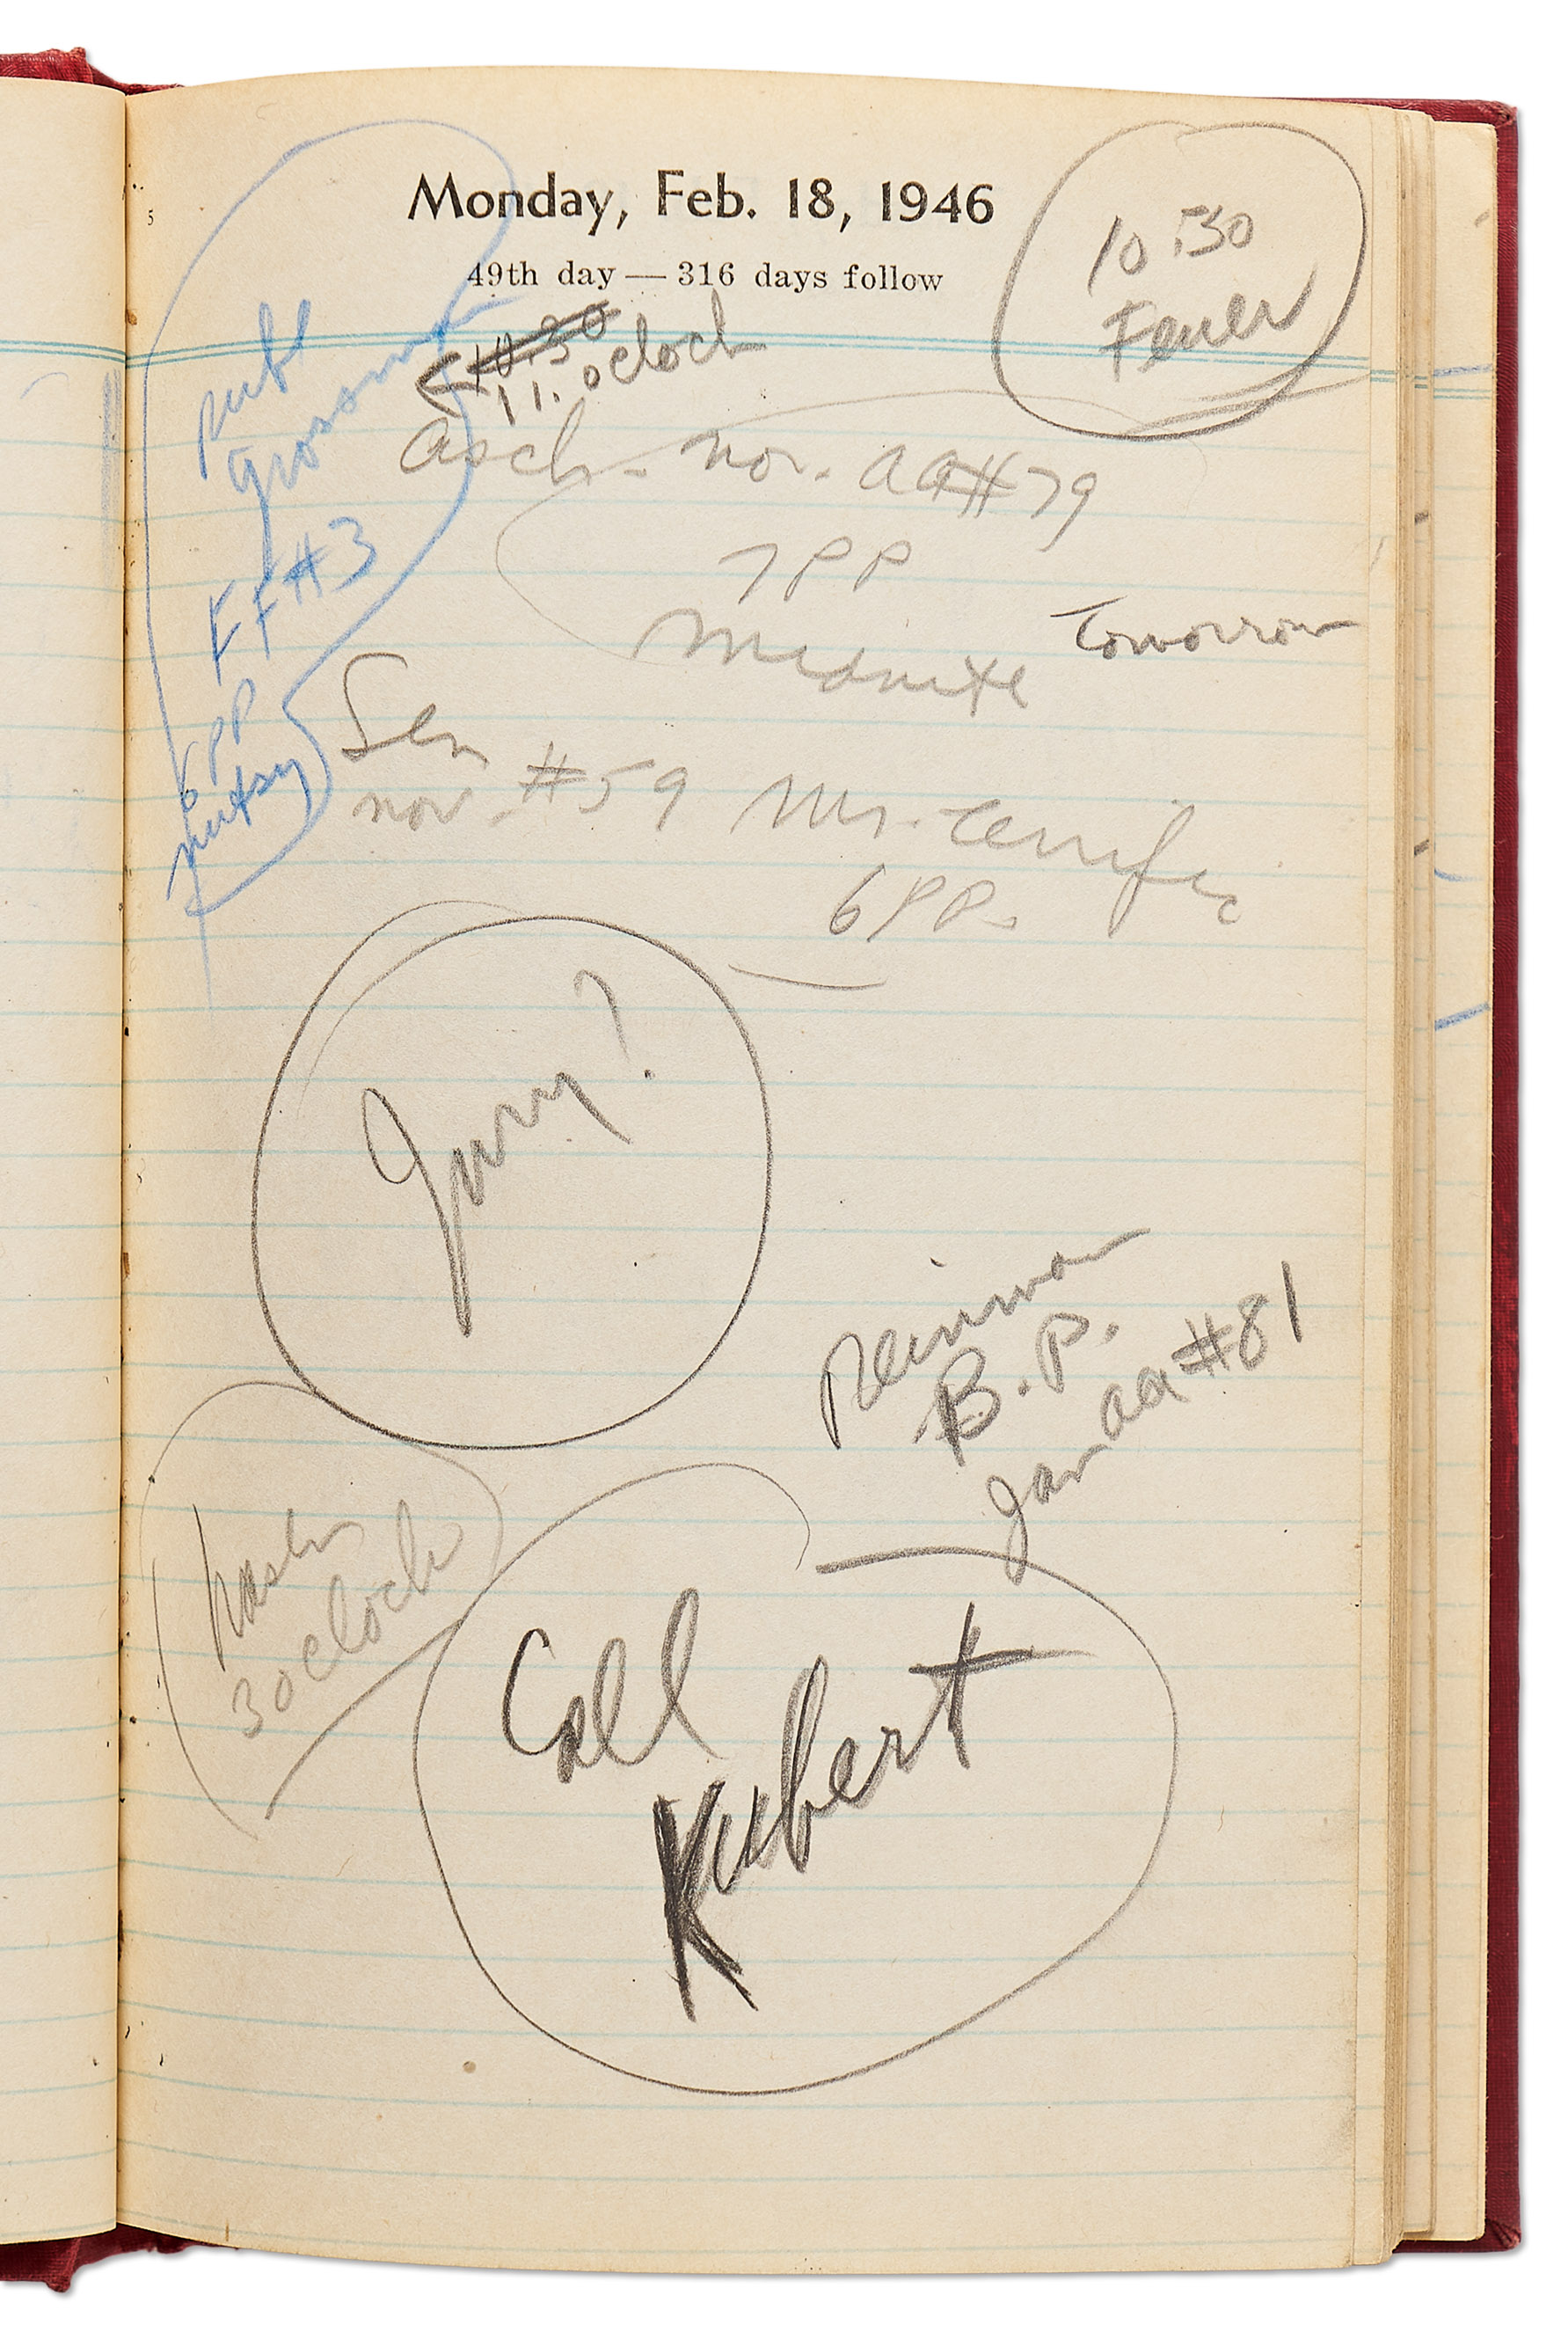 Monday, Feb. 18, 1946
49th day — 316 days follow
10:30
Feuer
10.30
11. oclock
Asch - nov. AA#79
7PP
Midnite
Tomorrow
Rube
Grossman
FF#3
6PP
mutsy
Sen
nov. #59 Mr. Terrific
6PP.
Jerry?
Reinman
B.P.
Jan AA#81
3 oclock
Call
Kubert